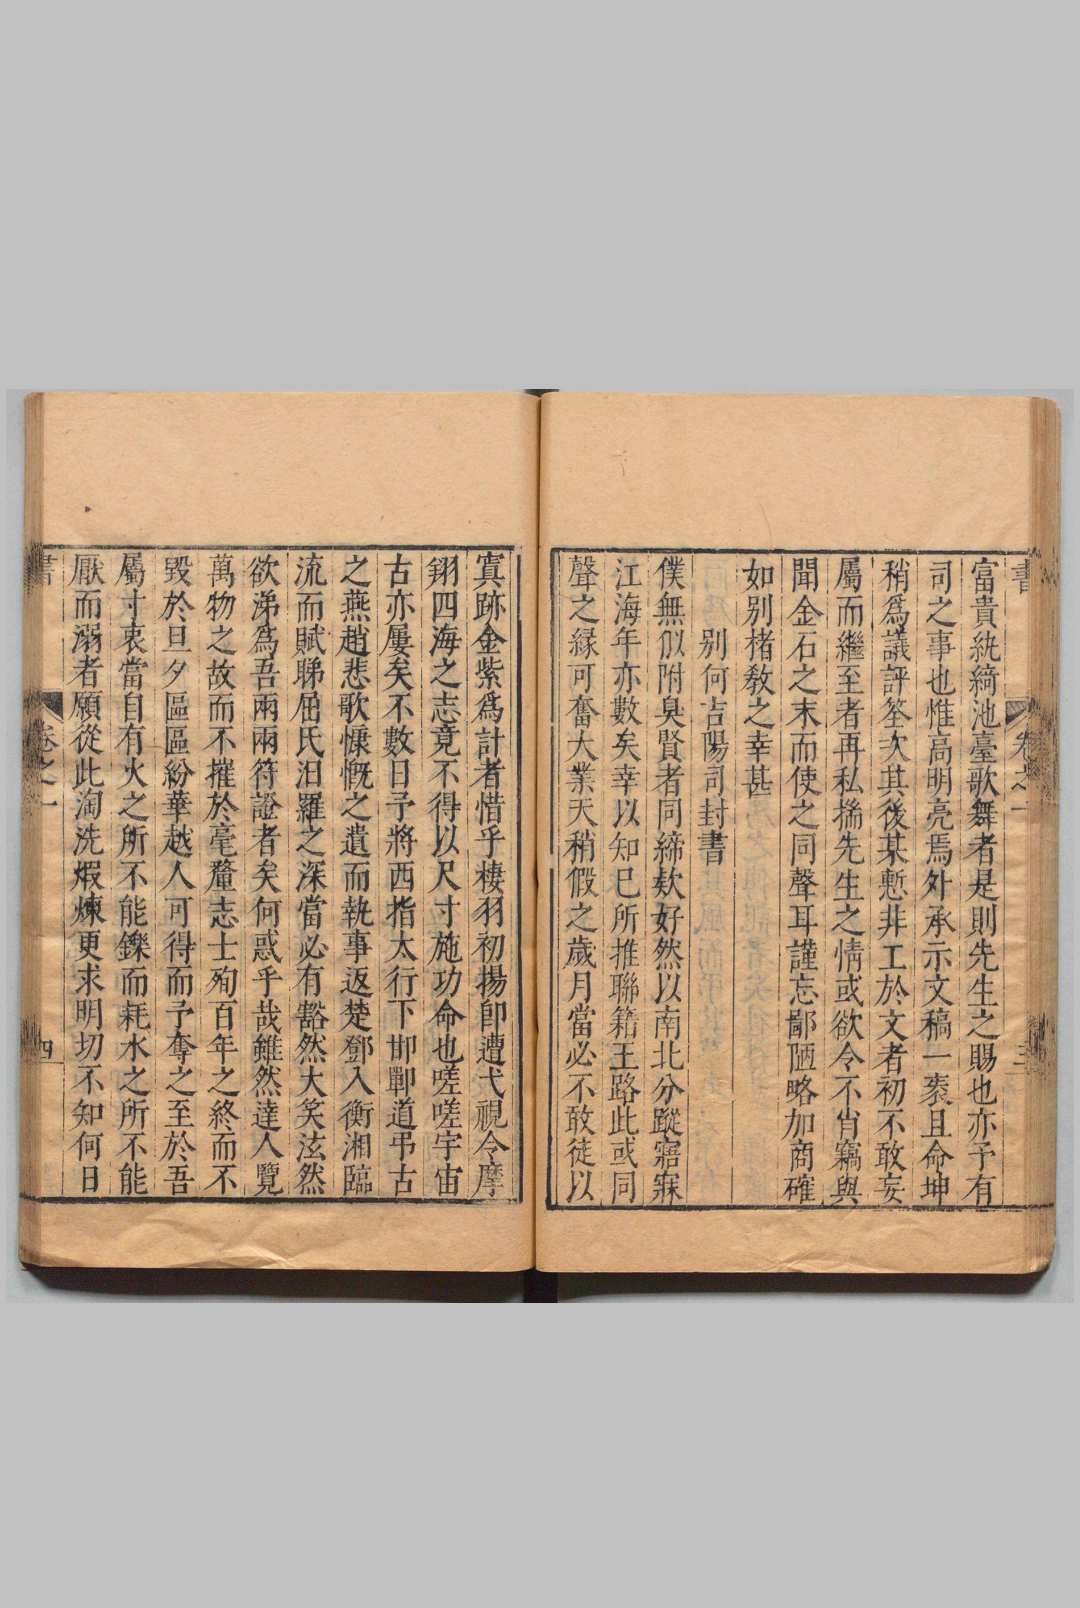 書 卷之一 三
富貴紈綺池臺歌舞者是則先生之賜也亦予有
司之事也惟高明亮焉外承示文稿一袠且命坤
稍爲議評筌次其後某慙非工於文者初不敢妄
屬而繼至者再私揣先生之情或欲令不肖竊與
聞金石之末而使之同聲耳謹忘鄙陋略加商確
如别楮教之幸甚
别何吉陽司封書
僕無似附臭賢者同締欵好然以南北分蹤寤寐
江海年亦數矣幸以知巳所推聯籍王路此或同
聲之緣可奮大業天稍假之歲月當必不敢徒以
寘跡金紫爲計者惜乎棲羽初揚卽遭弋視令摩
翔四海之志竟不得以尺寸施功命也嗟嗟宇宙
古亦屢矣不數日予將西指太行下邯鄲道弔古
之燕趙悲歌慷慨之遺而執事返楚鄧入衡湘臨
流而賦睇屈氏汨羅之深當必有豁然大笑泫然
欲涕爲吾兩兩符證者矣何惑乎哉雖然達人覽
萬物之故而不摧於毫釐志士殉百年之終而不
毀於旦夕區區紛華越人可得而予奪之至於吾
屬寸衷當自有火之所不能鑠而耗水之所不能
厭而溺者願從此淘洗煆煉更求明切不知何日
書 卷之一 四